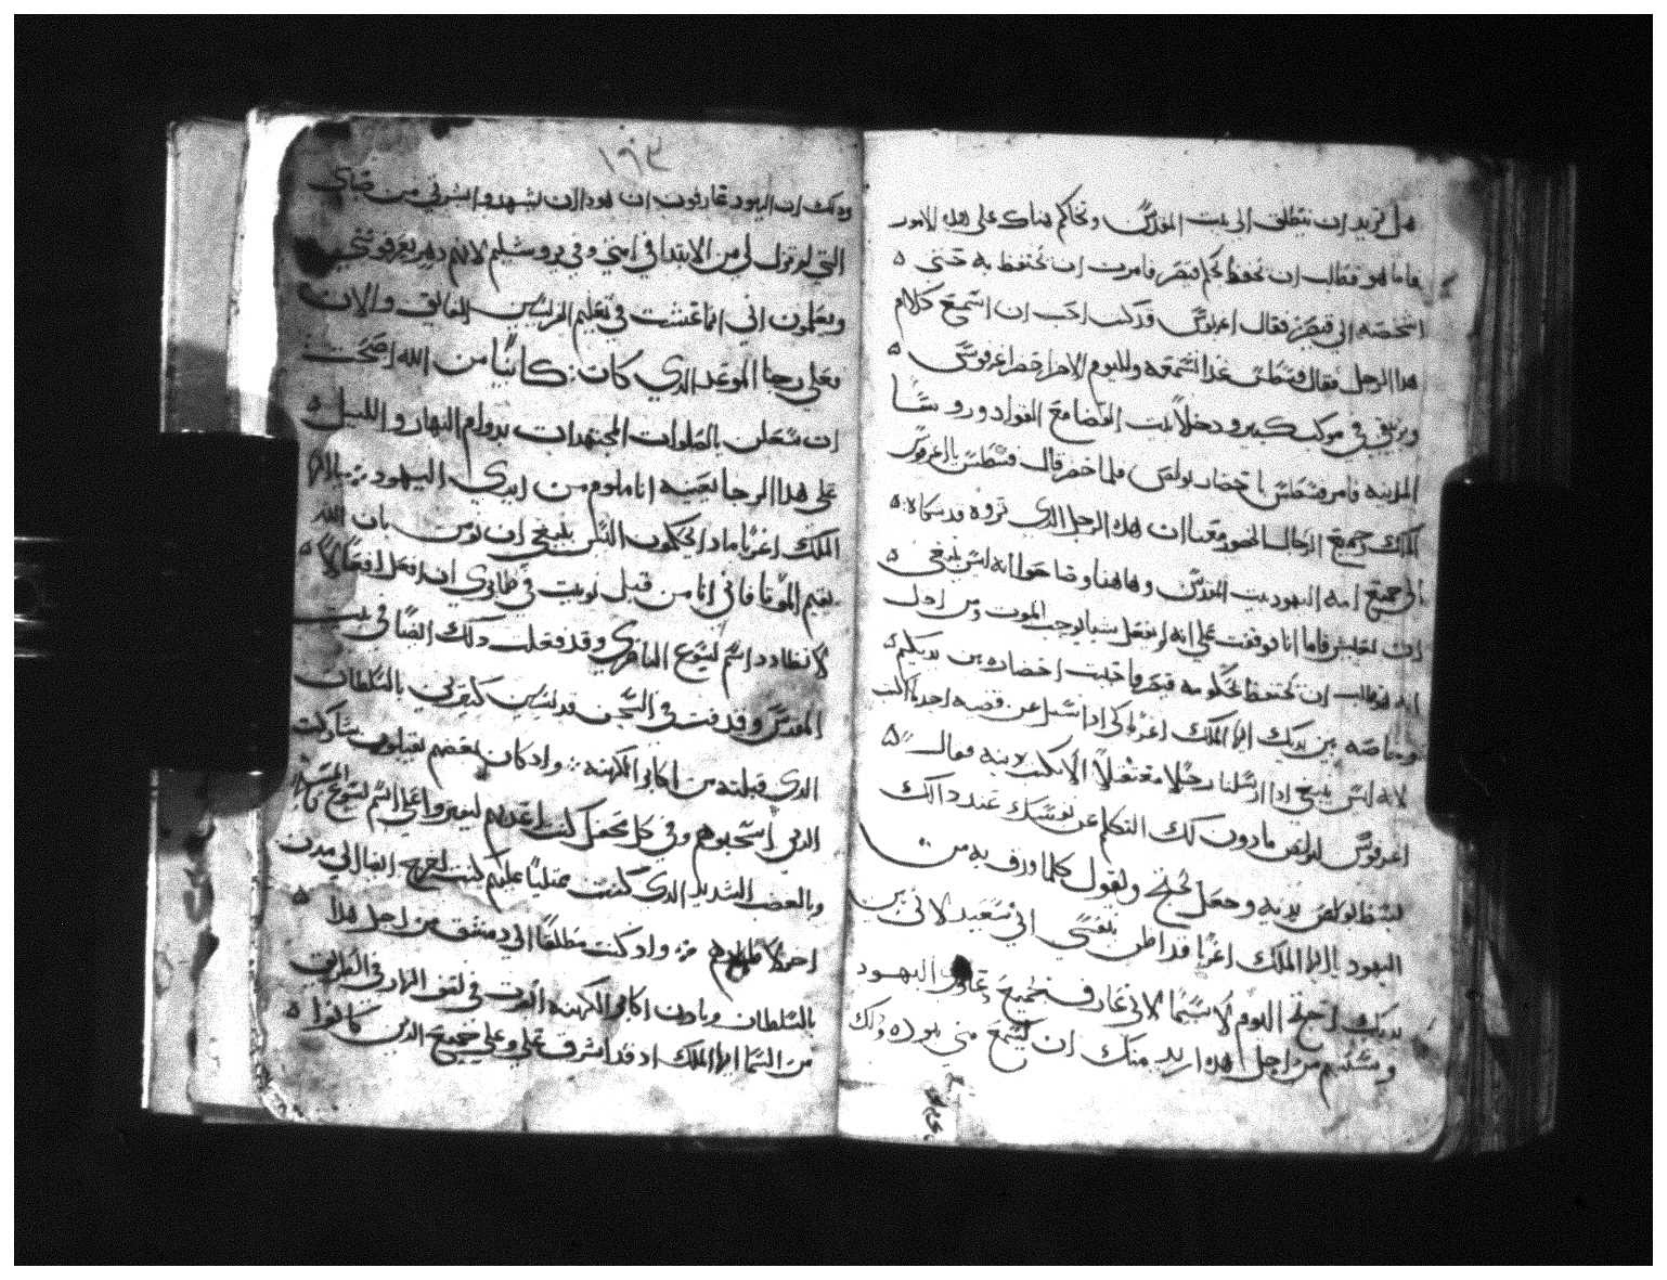 هل تريد ان تنطلق الى بيت المقدس وتحاكم هناك على هذه الامور
فاما هو فطلب ان يحفظ لحكم قيصر فامرت ان يحتفظ به حتى
اشخصه الى قيصر فقال اغرفوس قد كنت احب ان اسمع كلام
هذا الرجل فقال فسطس غدا تسمعه ولليوم الاخر حضر اغرفوس
وبرنيقي في موكب كبير ودخلا بيت القضا مع القواد وروسا
المدينه فامر فسطس باحضار بولص فلما حضر قال فسطس يا اغرفوس
الملك وجميع الرجال الحضور معنا ان هذا الرجل الذي تروه قد شكاه
الي جميع امه اليهود ببيت المقدس وهاهنا وصاحوا انه ليس ينبغي
ان يعيش فاما انا فوقفت على انه لم يفعل شيا يوجب الموت ومن اجل
انه طلب ان يحتفظ لحكومه قيصر فاحببت احضاره بين يديكم
وخاصه بين يديك ايها الملك اغربا كي اذا سيل عن قضيه اجد ما اكتب
لانه ليس ينبغي اذا ارسلنا رجلا معتقلا الا نكتب ذنبه فقال
اغرفوس لبولص مادون لك التكلم عن نفسك عند ذالك
بسط بولص يديه وجعل يحتج ويقول كلما ورف به من
اليهود يا ايها الملك اغربا قد اظن بنفسي اني سعيد لاني بين
يديك احتج اليوم لا سيما لاني عارف بجميع عاوى اليهود
وسننهم من اجل هذا اريد منك ان تسمع مني بتوده وذلك
١٩٣
وذلك ان اليهود عارفون ان هم ارادوا ان يشهدوا بسيرتي من صباي
التي لم تزل لي من الابتدا في امتي وفي يروشليم لانهم دهر يعرفونني
ويعلمون اني انما عشت في تعليم الفريسيين الفايق والان
فعلى رجا الموعد الذي كان كاينا من الله اضحت
ان تتعلن بالصلوات المجتهدات بدوام النهار والليل
على هذا الرجا بعينه انا ملوم من ايدي اليهود يا ايها
الملك اغربا ماذا تحكمون اليس ينبغي ان نومن بان الله
يقيم الموتا فاني انا من قبل نويت في ظاني ان افعل افعالا
لا تضادد اسم يسوع الناصري وقد فعلت ذلك ايضا في بيت
المقدس وقدفت في السجن قديسين كثيرين بالسلطان
الذي قبلته من اكابر الكهنه واذ كان بعضهم يقتلون شاركت
الذين استحبوهم وفي كل محفل كنت اعذبهم ليفتروا على اسم يسوع المسيح
وبالغضب الشديد الذي كنت ممتليا عليهم كنت اخرج ايضا الى مدن
اخر لاطلبهم واذ كنت منطلقا الى دمشق من اجل هذا
بالسلطان وبادن اكابر الكهنه اشرقت في نصف النهار في الطريق
من السما ايها الملك اذ قد اشرق علي وعلى جميع الذين كانوا